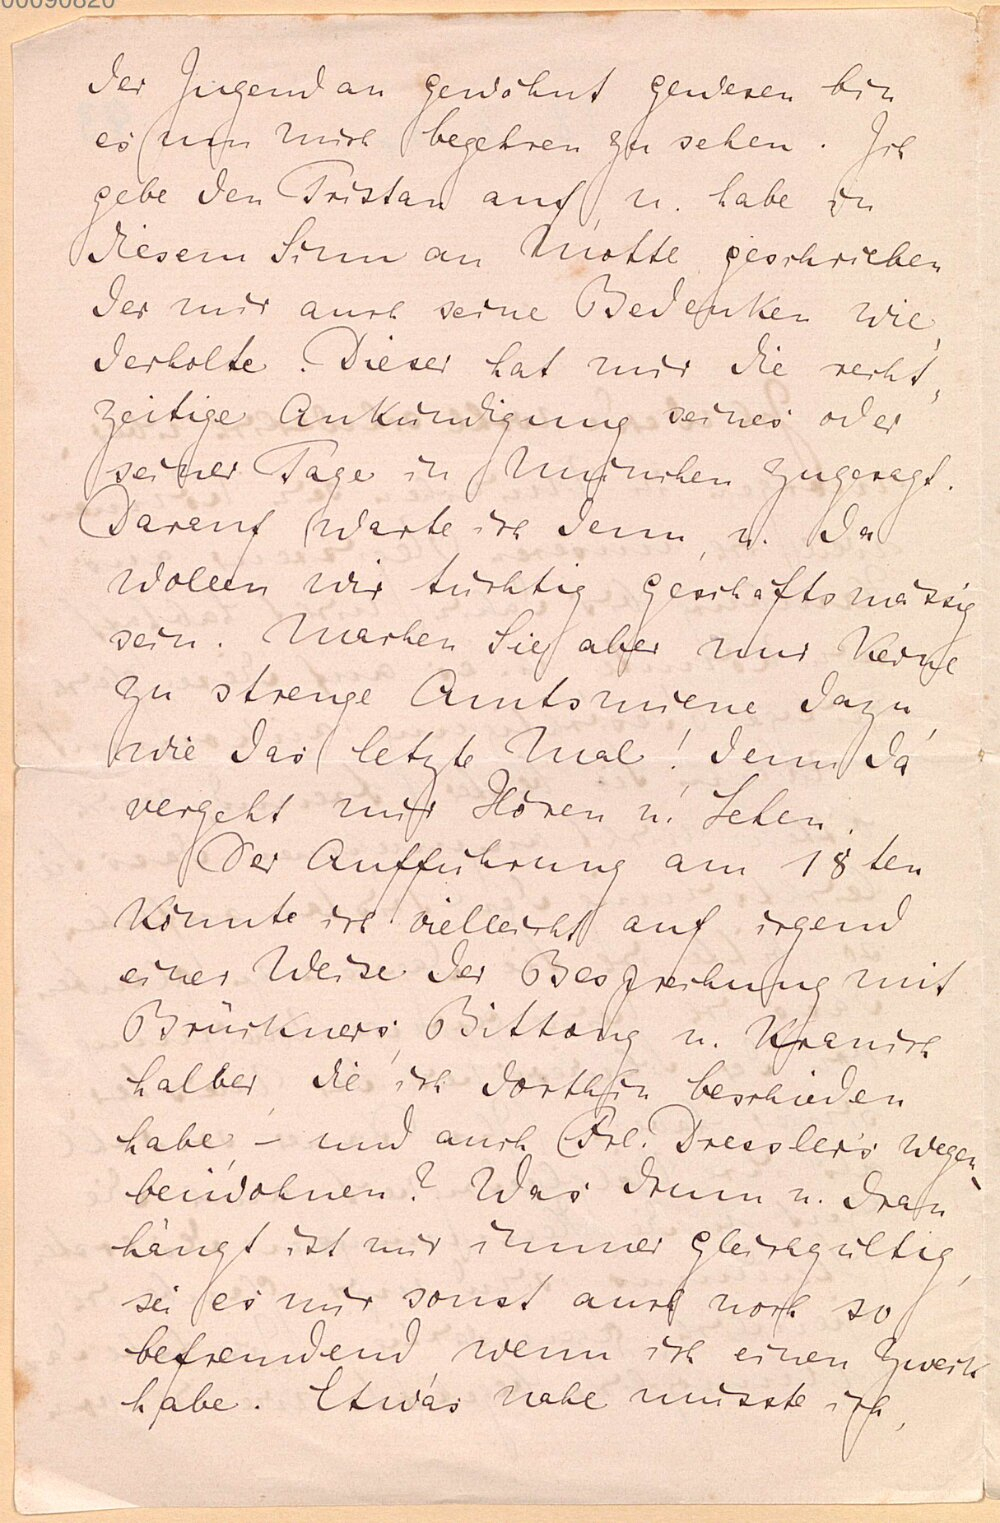 00090820
der Jugend an gewöhnt gewesen bin
es um mich begehren zu sehen. Ich
gebe den Tristan auf, u. habe in
diesem Sinn an Mottl geschrieben
der mir auch seine Bedenken wie,
derholte. Dieser hat mir die recht,
zeitige Ankündigung seines oder
seiner Tage in München zugesagt.
Darauf warte ich denn, u. da
wollen wir tüchtig geschäftsmässig
sein. Machen Sie aber nur keine
zu strenge Amtsmiene dazu,
wie das letzte Mal! denn da
vergeht mir Hören u. Sehen.
Der Aufführung am 18ten
könnte ich vielleicht auf irgend
einer Weise der Besprechung mit
Brückners, Bittong u. Kranich
halber, die ich dorthin beschieden
habe, – und auch Frl. Dressler's wegen,
beiwohnen? Was drum u. dran
hängt ist mir immer gleichgültig,
sei es mir sonst auch noch so
befremdend wenn ich einen Zweck
habe. Etwas nahe müsste ich,